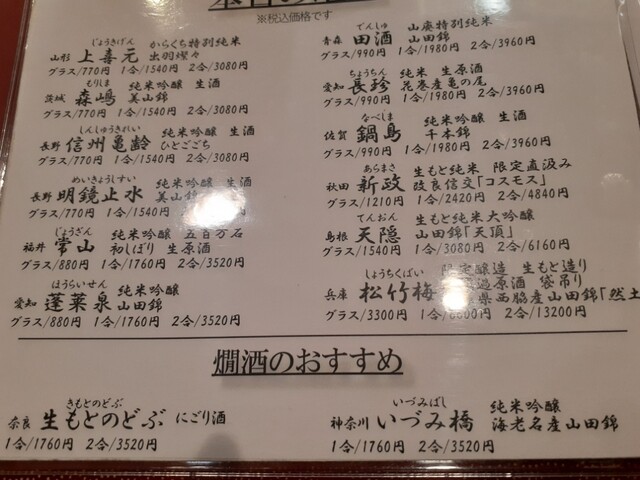 ※税込価格です
じょうきげん からくち特別純米
山形 上喜元 出羽燦々
グラス/770円 1合/1540円 2合/3080円
もりしま 純米吟醸 生酒
茨城 森嶋 美山錦
グラス/770円 1合/1540円 2合/3080円
しんしゅうきれい 純米吟醸 生酒
長野 信州亀齢 ひとごこち
グラス/770円 1合/1540円 2合/3080円
めいきょうしすい 純米吟醸 生酒
長野 明鏡止水 美山錦
グラス/770円 1合/1540円 2合/3080円
じょうざん 純米吟醸 五百万石
福井 常山 初しぼり 生原酒
グラス/880円 1合/1760円 2合/3520円
ほうらいせん 純米吟醸
愛知 蓬莱泉 山田錦
グラス/880円 1合/1760円 2合/3520円
でんしゅ 山廃特別純米
青森 田酒 山田錦
グラス/990円 1合/1980円 2合/3960円
ちょうちん 純米 生原酒
愛知 長珍 花巻産亀の尾
グラス/990円 1合/1980円 2合/3960円
なべしま 純米吟醸 生酒
佐賀 鍋島 千本錦
グラス/990円 1合/1980円 2合/3960円
あらまさ 生もと純米 限定直汲み
秋田 新政 改良信交「コスモス」
グラス/1210円 1合/2420円 2合/4840円
てんおん 生もと純米大吟醸
島根 天隠 山田錦「天頂」
グラス/1540円 1合/3080円 2合/6160円
しょうちくばい 限定醸造 生もと造り
兵庫 松竹梅 過原酒 袋吊り
県西脇産山田錦「然土
グラス/3300円 1合/6600円 2合/13200円
燗酒のおすすめ
きもとのどぶ
奈良 生もとのどぶ にごり酒
1合/1760円 2合/3520円
いづみばし 純米吟醸
神奈川 いづみ橋 海老名産山田錦
1合/1760円 2合/3520円